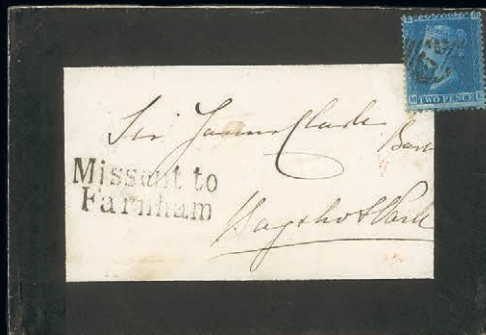 TWO PENCE
Sir James Clark Bart
Missent to
Farnham
Bagshot Park